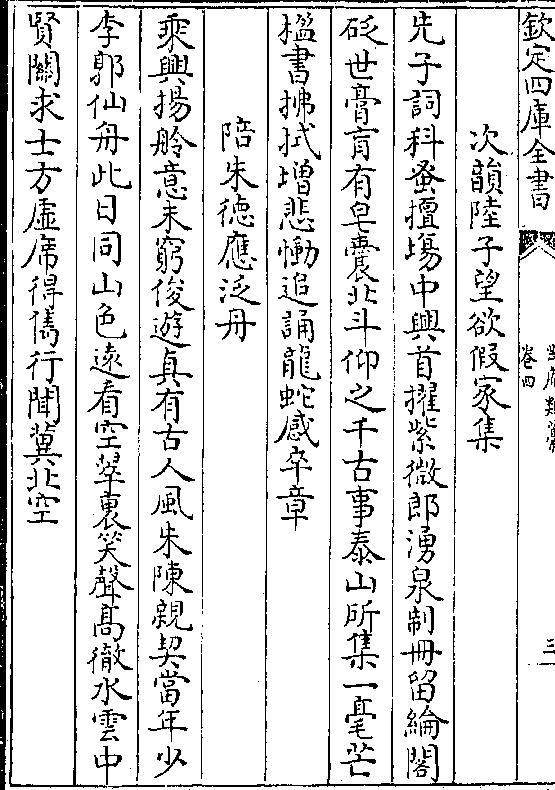 欽定四庫全書
卷四
三
次韻陸子望欲假家集
先子詞科蚤擅場中興首擢紫微郎湧泉制冊留綸閣
砭世膏肓有皁囊北斗仰之千古事泰山所集一毫芒
楹書拂拭增悲慟追誦龍蛇感卒章
陪朱德應泛舟
乘興揚舲意未窮俊遊真有古人風朱陳親契當年少
李郭仙舟此日同山色遠看空翠裏笑聲高徹水雲中
賢關求士方虛席得儁行聞冀北空